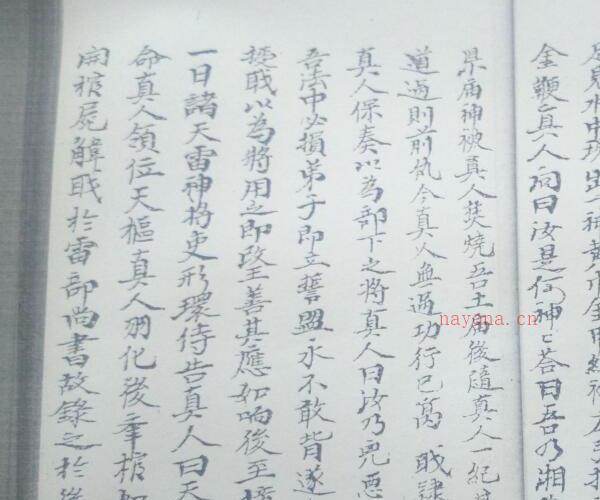 足見水中現出一神黃巾金甲
金鞭真人问曰汝是何神答曰吾乃湘
県庙神被真人焚燒吾土庙後隨真人一紀
道过則前仇今真人無过功行已萬 戝隸
真人保奏以為部下之將真人曰汝乃兇惡
吾法中必損弟子即立誓盟永不敢背遂
授戝以為將用之即改王善其應如响後至
一日諸天雷神將吏形環侍告真人曰天
命真人領位天樞真人羽化後舉棺如
開棺屍解戝於雷部尚書故錄之於後
nayona.cn